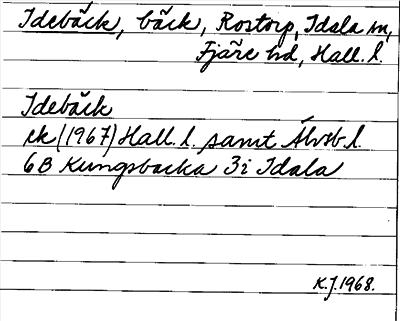 Idebäck, bäck, Rostorp, Idala sn,
Fjäre hd, Hall. l.
Idebäck
ek (1967) Hall. l. samt Älvsb. l.
6B Kungsbacka 3i Idala
K.J. 1968.